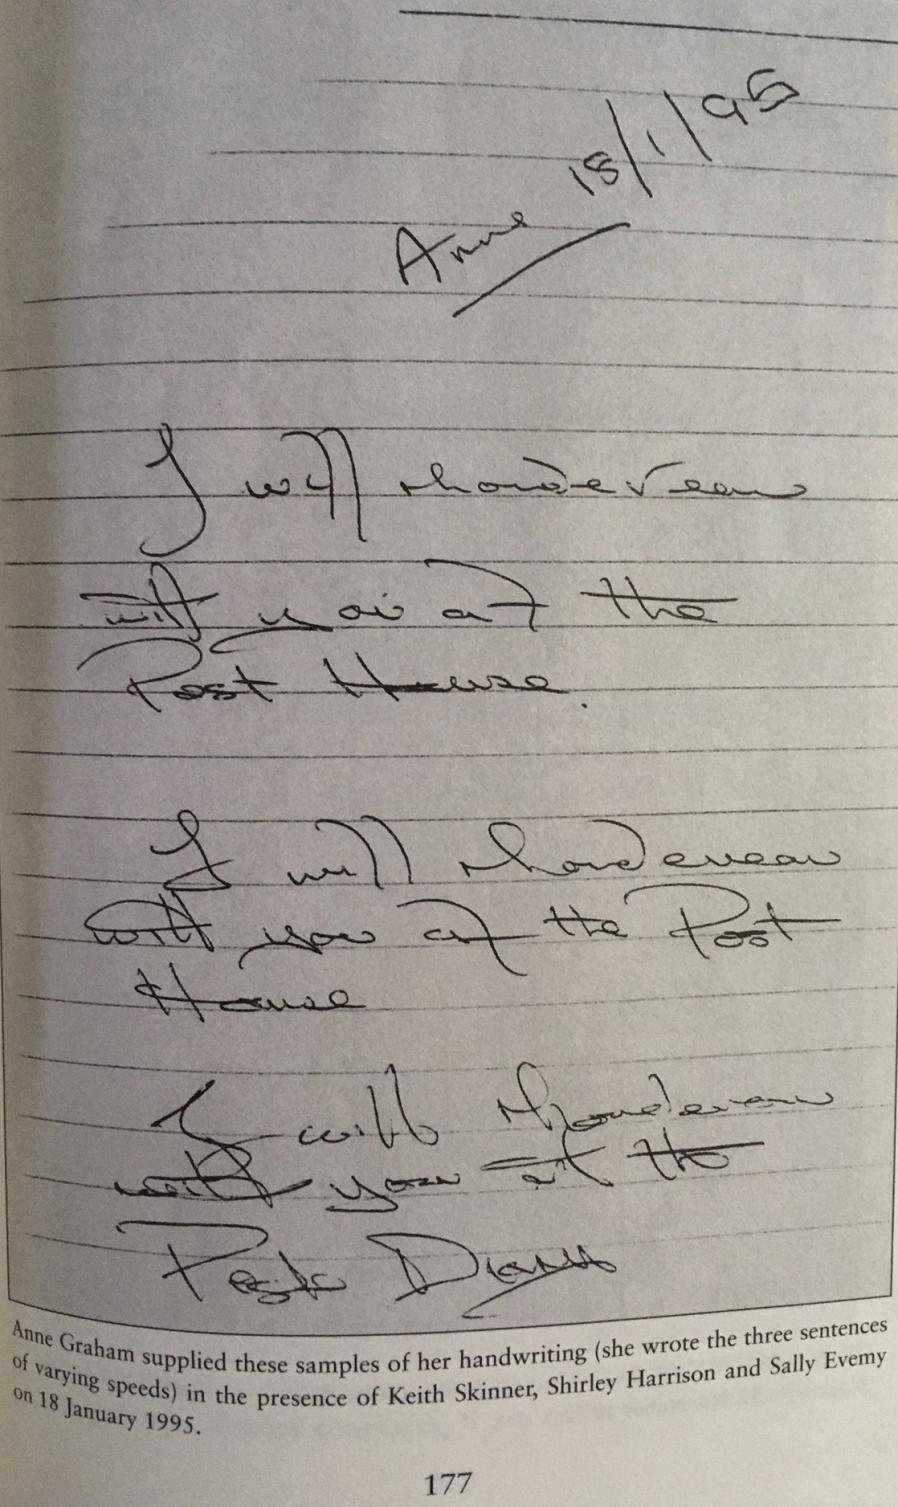 Anne 18/1/95
I will rhondeveau
with you at the
Post House.
I will rhondeveau
with you at the Post
House
I will rhondeveau
with you at the
Post
Anne Graham supplied these samples of her handwriting (she wrote the three sentences
of varying speeds) in the presence of Keith Skinner, Shirley Harrison and Sally Evemy
on 18 January 1995.
177